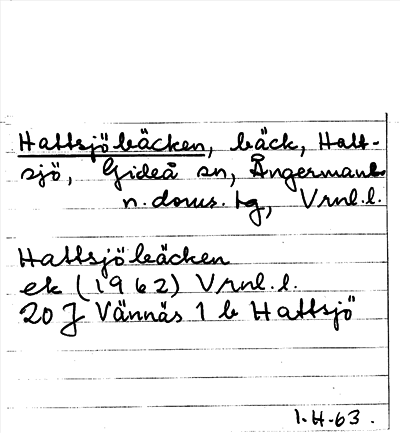 Hattsjöbäcken, bäck, Hatt-
sjö, Gideå sn, Ångermanl.
n. doms. tg, Vrnl.l.
Hattsjöbäcken
ek (1962) Vrnl.l.
20 J Vännäs 1 b Hattsjö
63.